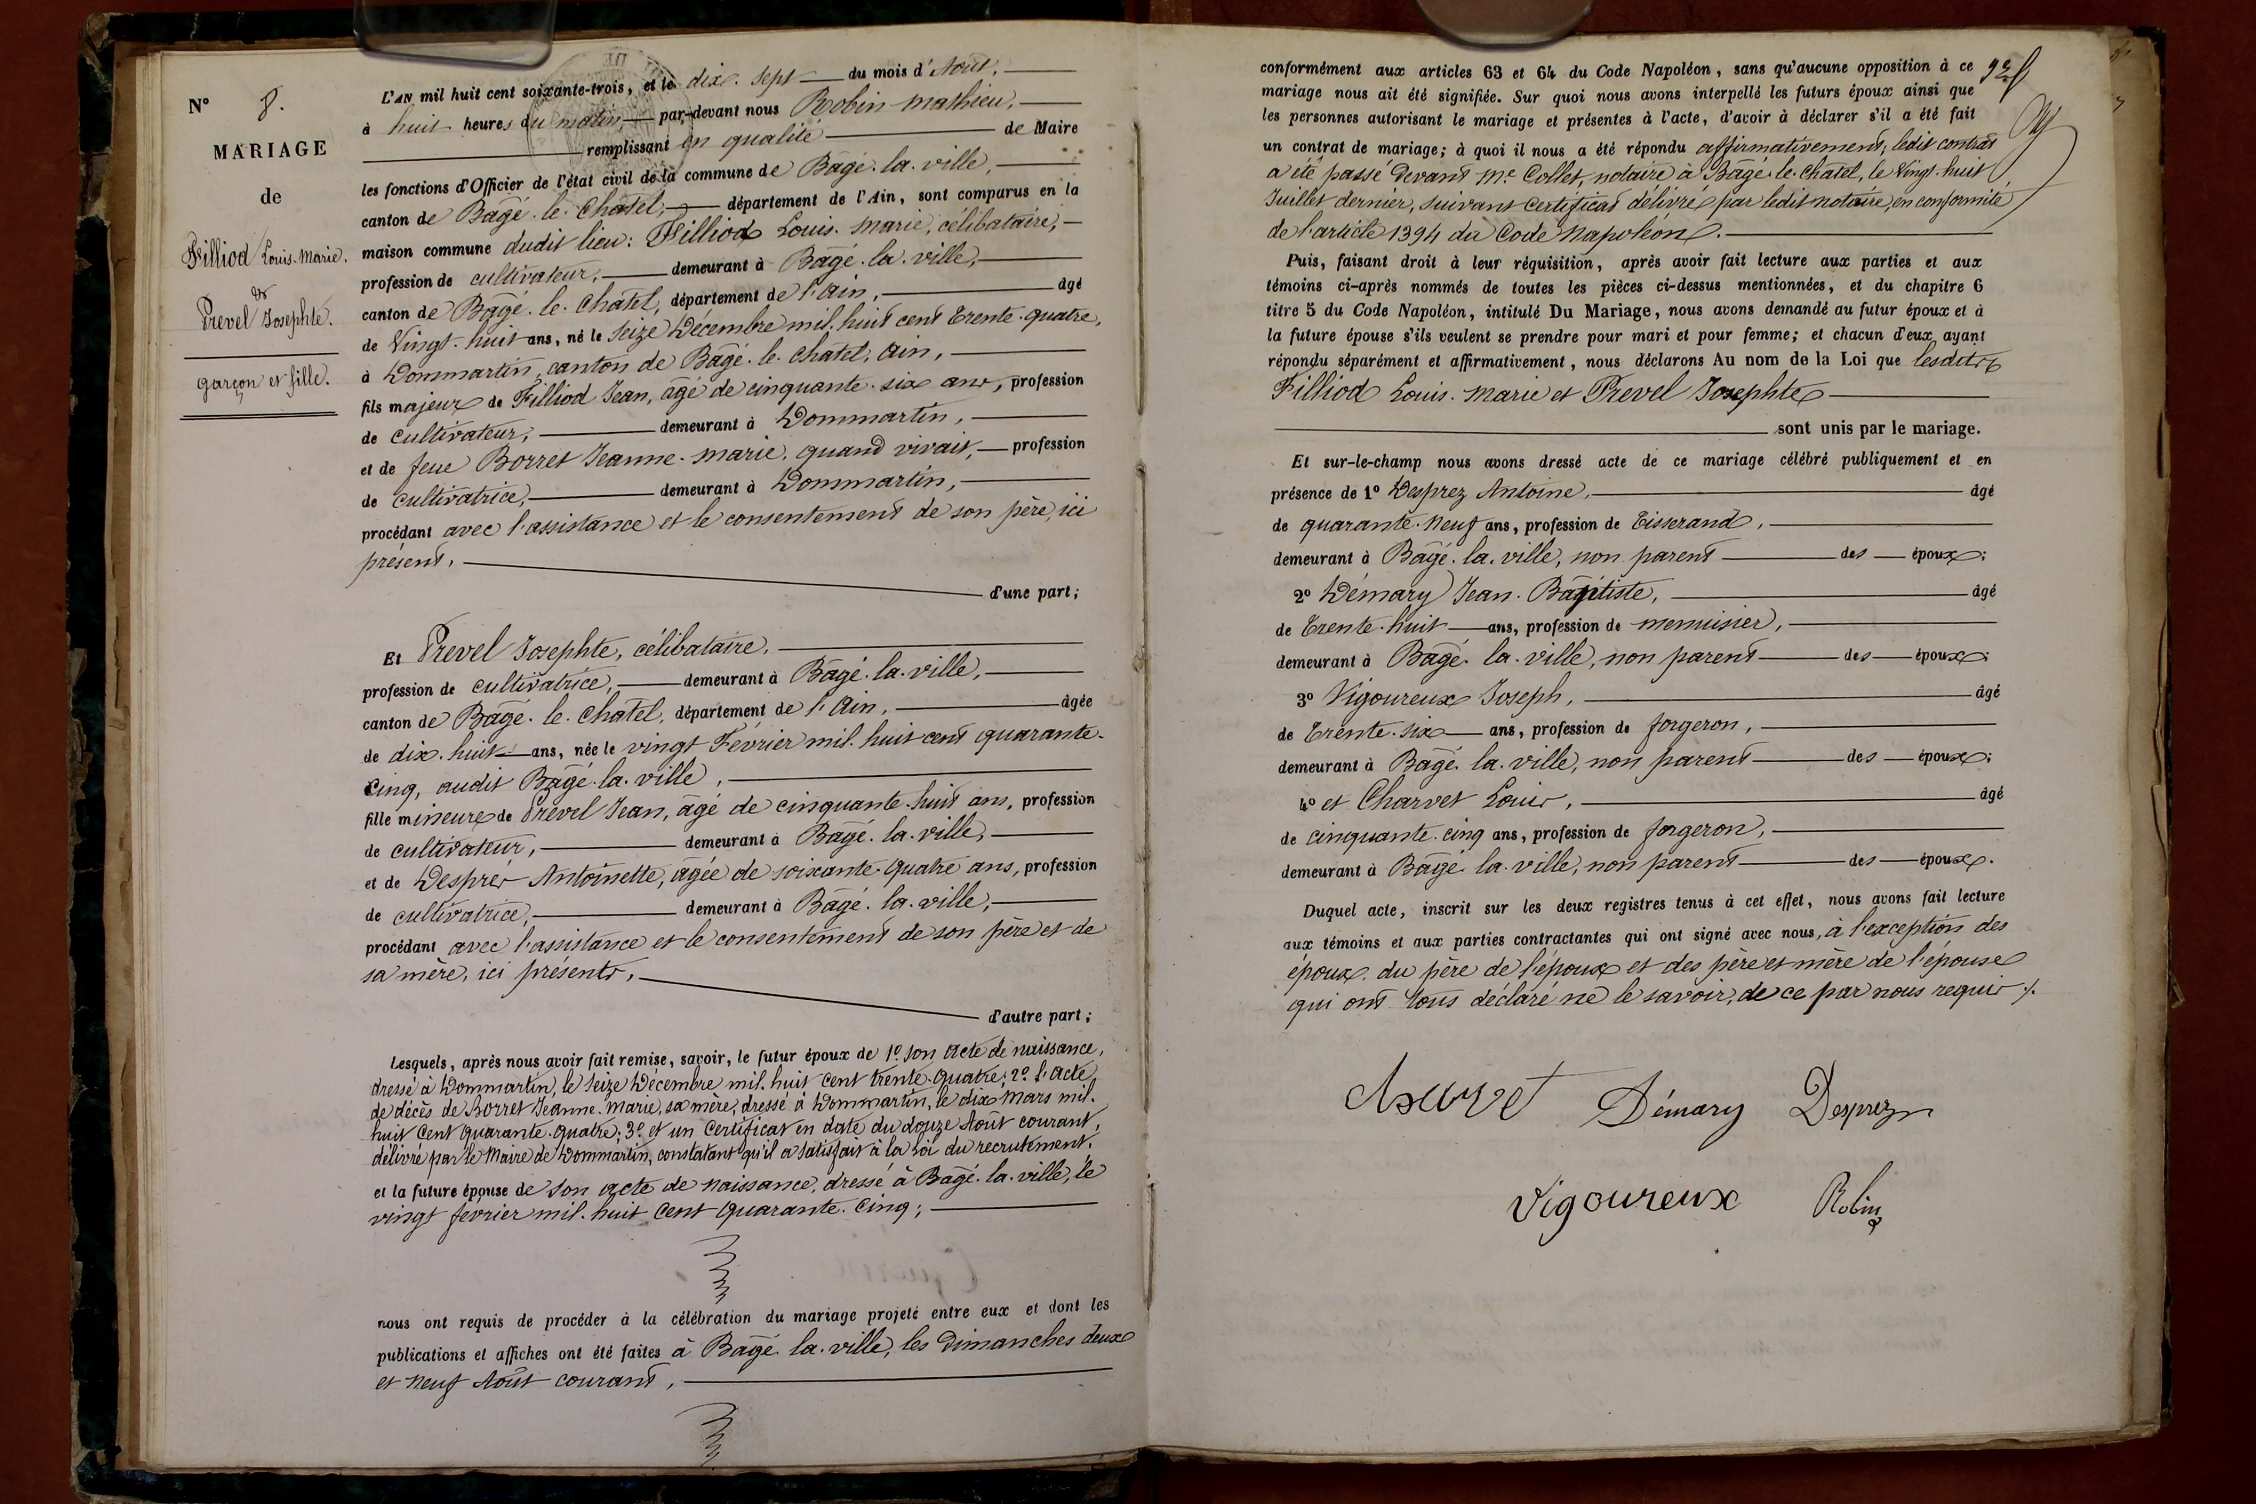 N° 8.
MARIAGE
de
Filliod Louis-Marie.
et
Prevel Josephte.
garçon et fille.
L'AN mil huit cent soixante-trois, et le dix-sept du mois d'Août,
à huit heures du matin, par-devant nous Robin Mathieu,
remplissant en qualité de Maire
les fonctions d'Officier de l'état civil de la commune de Bâgé-la-ville,
canton de Bâgé-le-Chatel, département de l'Ain, sont comparus en la
maison commune dudit lieu: Filliod Louis-Marie, célibataire,
profession de cultivateur, demeurant à Bâgé-la-ville,
canton de Bâgé-le-Chatel, département de l'Ain, âgé
de Vingt-huit ans, né le Seize Décembre mil-huit cent Trente-quatre,
à Dommartin, canton de Bâgé-le-Chatel, Ain,
fils majeur de Filliod Jean, âgé de cinquante-six ans, profession
de cultivateur, demeurant à Dommartin,
et de feue Borret Jeanne-Marie, quand vivait, profession
de cultivatrice, demeurant à Dommartin,
procédant avec l'assistance et le consentement de son père, ici
présent,
d'une part;
Et Prevel Josephte, célibataire,
profession de cultivatrice, demeurant à Bâgé-la-ville,
canton de Bâgé-le-Chatel, département de l'Ain, âgée
de dix-huit ans, née le vingt Février mil-huit cent quarante-
cinq, audit Bâgé-la-ville,
fille mineure de Prevel Jean, âgé de cinquante-huit ans, profession
de cultivateur, demeurant à Bâgé-la-ville,
et de Desprèr Antoinette, âgée de soixante-quatre ans, profession
de cultivatrice, demeurant à Bâgé-la-ville,
procédant avec l'assistance et le consentement de son père et de
sa mère, ici présents,
d'autre part;
Lesquels, après nous avoir fait remise, savoir, le futur époux de 1° son acte de naissance,
dressé à Dommartin, le Seize Décembre mil-huit cent trente-quatre; 2° l'acte
de décès de Borret Jeanne-Marie, sa mère, dressé à Dommartin, le dix Mars mil-
huit cent quarante-quatre; 3° et un Certificat en date du douze Août courant,
délivré par le Maire de Dommartin, constatant qu'il a satisfait à la Loi du recrutement,
et la future épouse de son acte de naissance, dressé à Bâgé-la-ville, le
vingt février mil-huit cent quarante-cinq;
nous ont requis de procéder à la célébration du mariage projeté entre eux et dont les
publications et affiches ont été faites à Bâgé-la-ville, les Dimanches deux
et neuf Août courant,
conformément aux articles 63 et 64 du Code Napoléon, sans qu'aucune opposition à ce
mariage nous ait été signifiée. Sur quoi nous avons interpellé les futurs époux ainsi que
les personnes autorisant le mariage et présentes à l'acte, d'avoir à déclarer s'il a été fait
un contrat de mariage; à quoi il nous a été répondu affirmativement, ledit contrat
a été passé devant Me Collet, notaire à Bâgé-le-Chatel, le Vingt-huit
Juillet dernier, suivant certificat délivré par ledit notaire, en conformité
de l'article 1394 du Code Napoléon.
Puis, faisant droit à leur réquisition, après avoir fait lecture aux parties et aux
témoins ci-après nommés de toutes les pièces ci-dessus mentionnées, et du chapitre 6
titre 5 du Code Napoléon, intitulé Du Mariage, nous avons demandé au futur époux et à
la future épouse s'ils veulent se prendre pour mari et pour femme; et chacun d'eux ayant
répondu séparément et affirmativement, nous déclarons Au nom de la Loi que lesdits
Filliod Louis-Marie et Prevel Josephte
sont unis par le mariage.
Et sur-le-champ nous avons dressé acte de ce mariage célébré publiquement et en
présence de 1° Desprez Antoine, âgé
de quarante-neuf ans, profession de Tisserand,
demeurant à Bâgé-la-ville, non parent des époux;
2° Démary Jean-Baptiste, âgé
de Trente-huit ans, profession de menuisier,
demeurant à Bâgé-la-ville, non parent des époux;
3° Vigoureux Joseph, âgé
de Trente-six ans, profession de forgeron,
demeurant à Bâgé-la-ville, non parent des époux;
4° et Charvet Louis, âgé
de cinquante-cinq ans, profession de forgeron,
demeurant à Bâgé-la-ville, non parent des époux.
Duquel acte, inscrit sur les deux registres tenus à cet effet, nous avons fait lecture
aux témoins et aux parties contractantes qui ont signé avec nous, à l'exception des
époux, du père de l'époux et des père et mère de l'épouse
qui ont tous déclaré ne le savoir, de ce par nous requis ./.
Démary Desprez
Vigoureux Robin